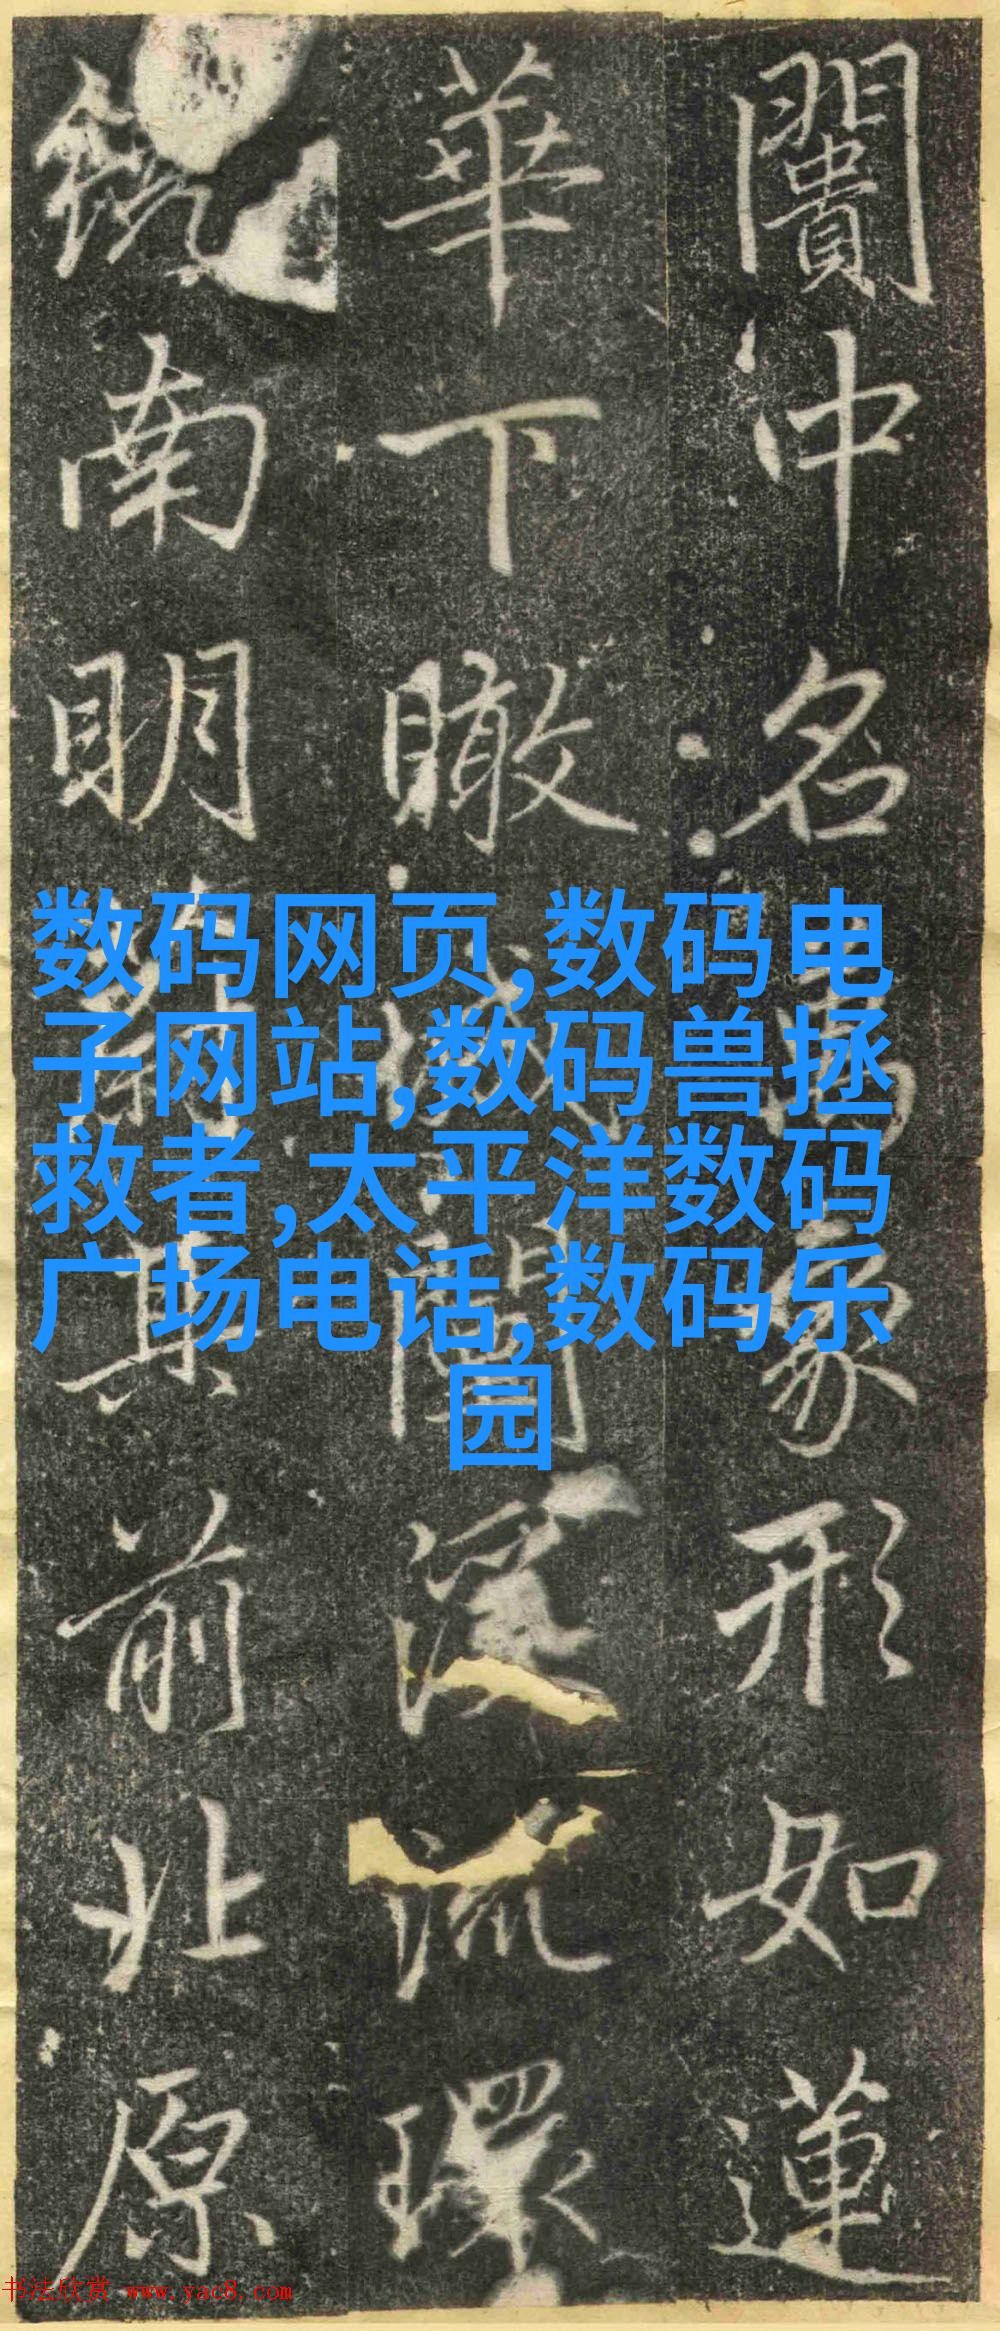 闠冲名萬象形如蓮
華下瞰城闉深流環
南明其前北原
数码网页,数码电
子网站,数码兽拯
救者,太平洋数码
广场电话,数码乐
园
书法欣赏 www.yac8.com